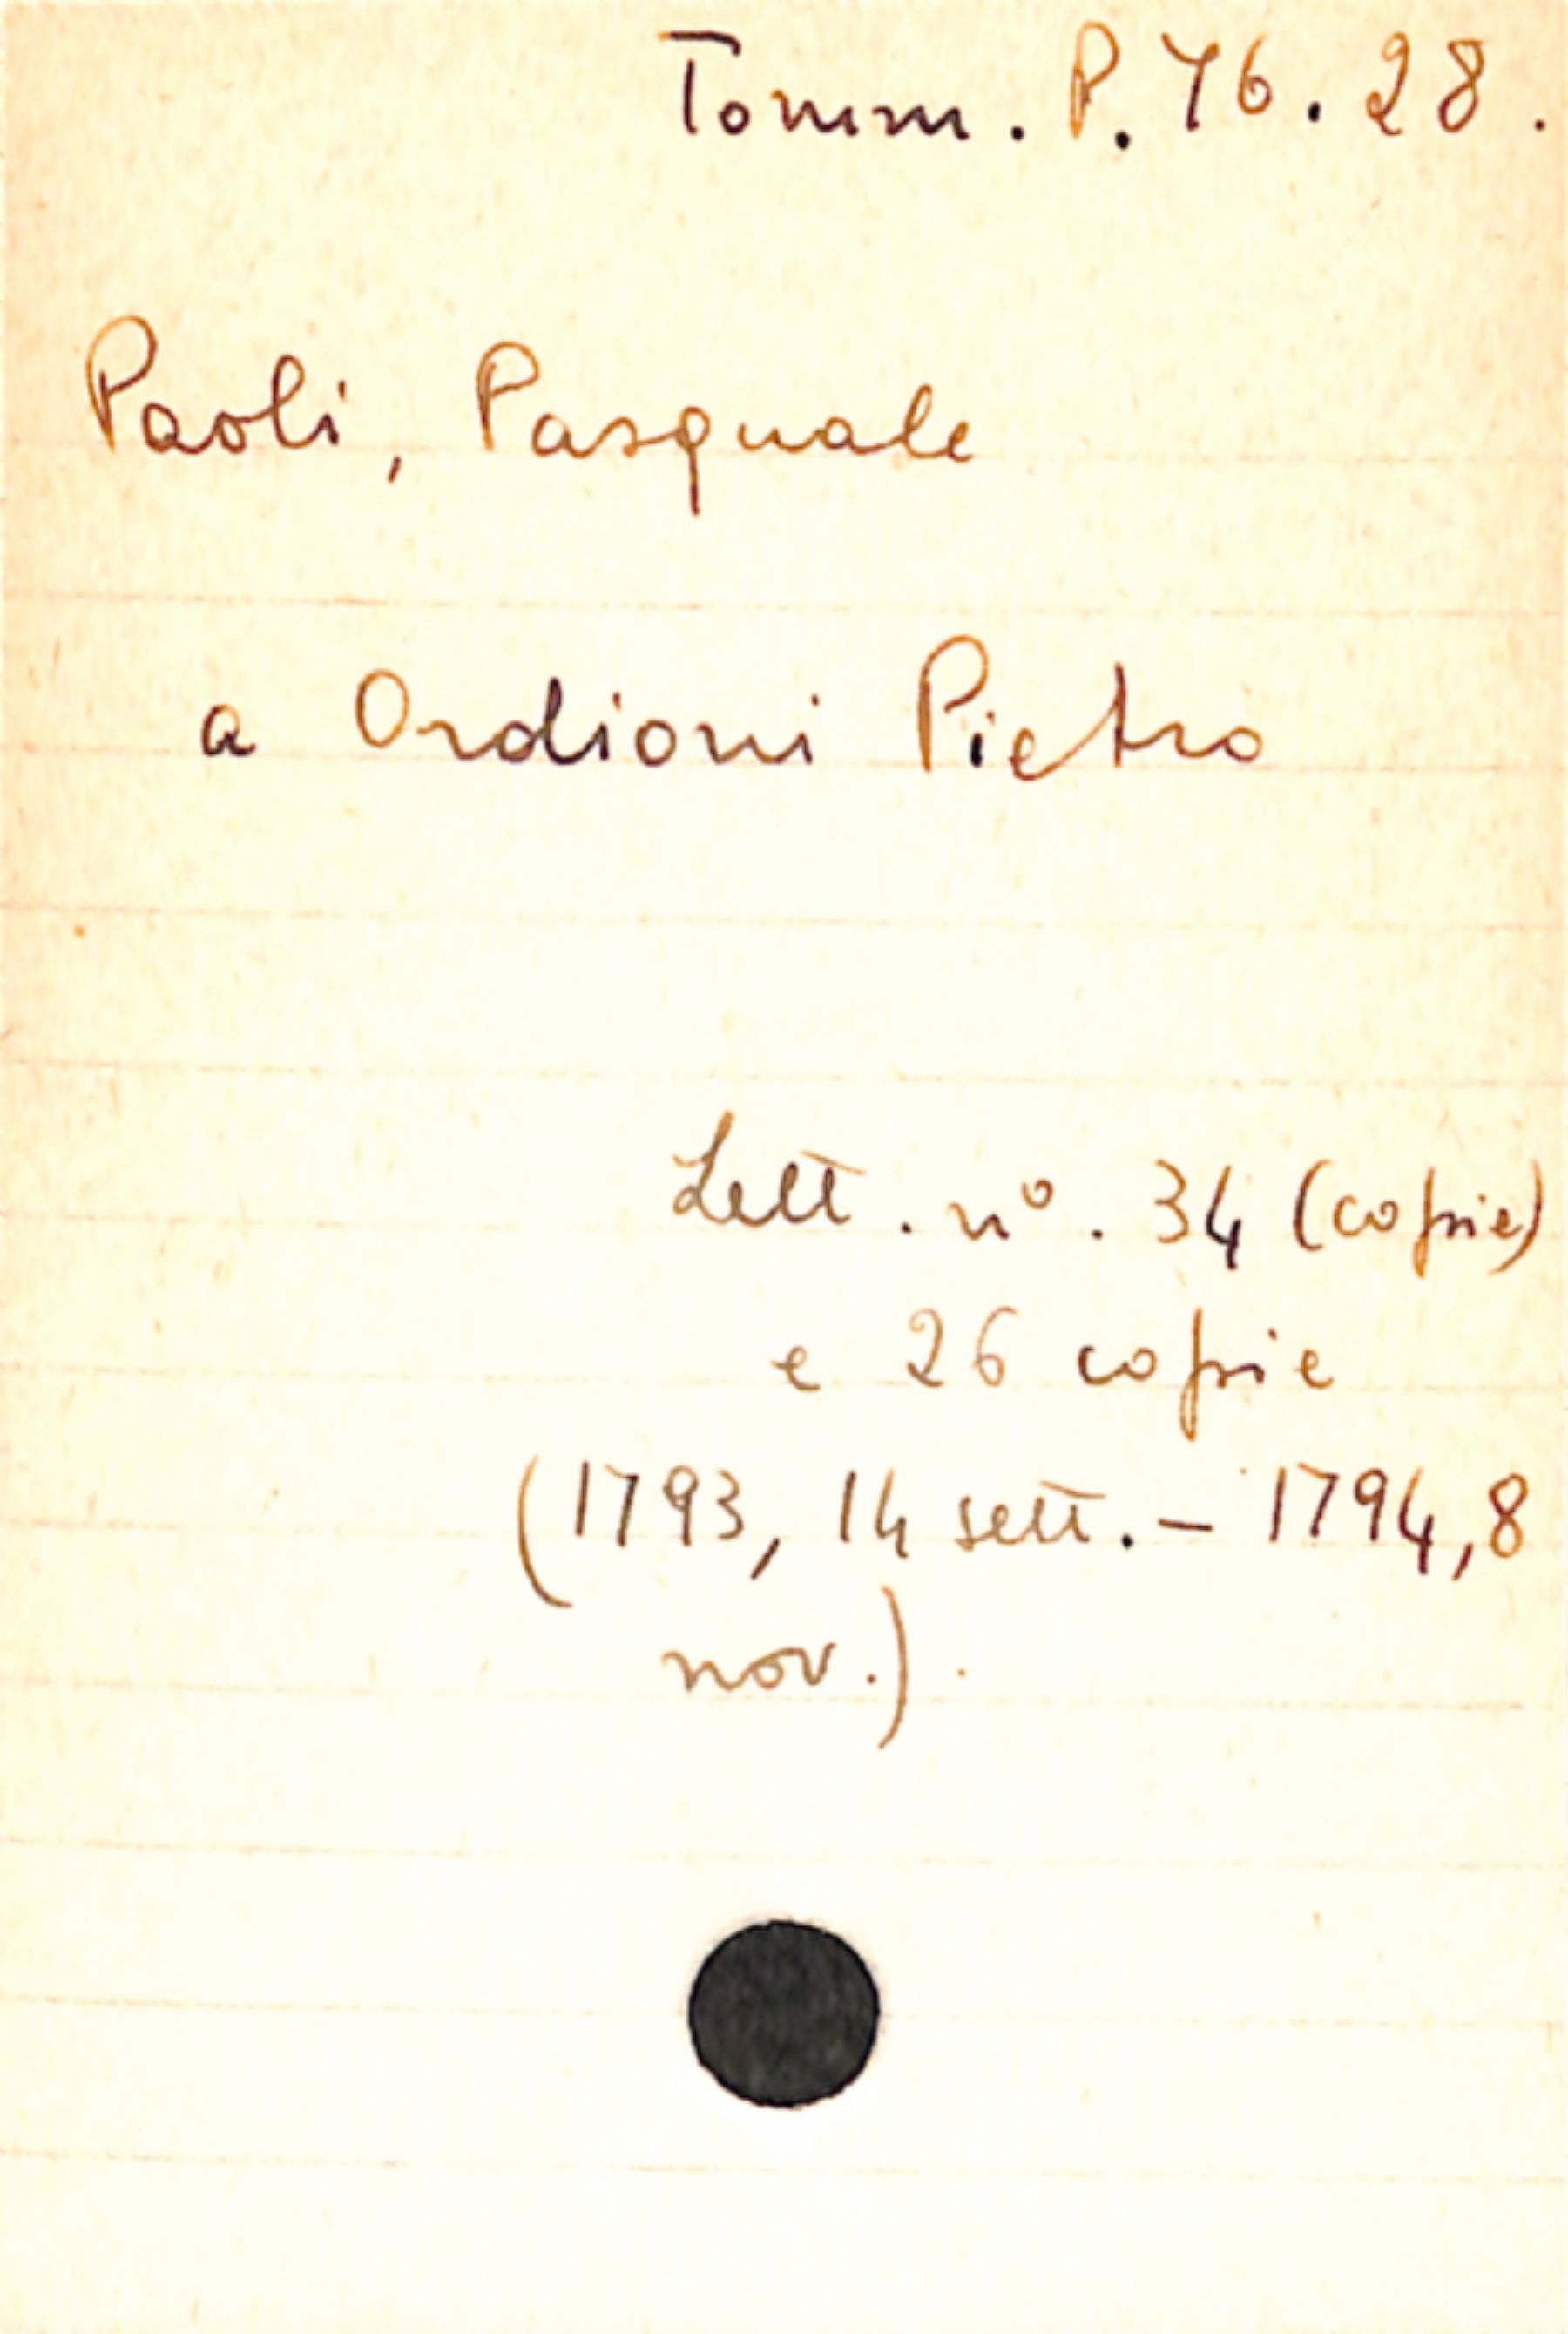 Tomm. P. 76. 28.
Paoli, Pasquale
a Ordioni Pietro
Lett. nº. 34 (copie)
e 26 copie
(1793, 14 sett. - 1794, 8
nov.).